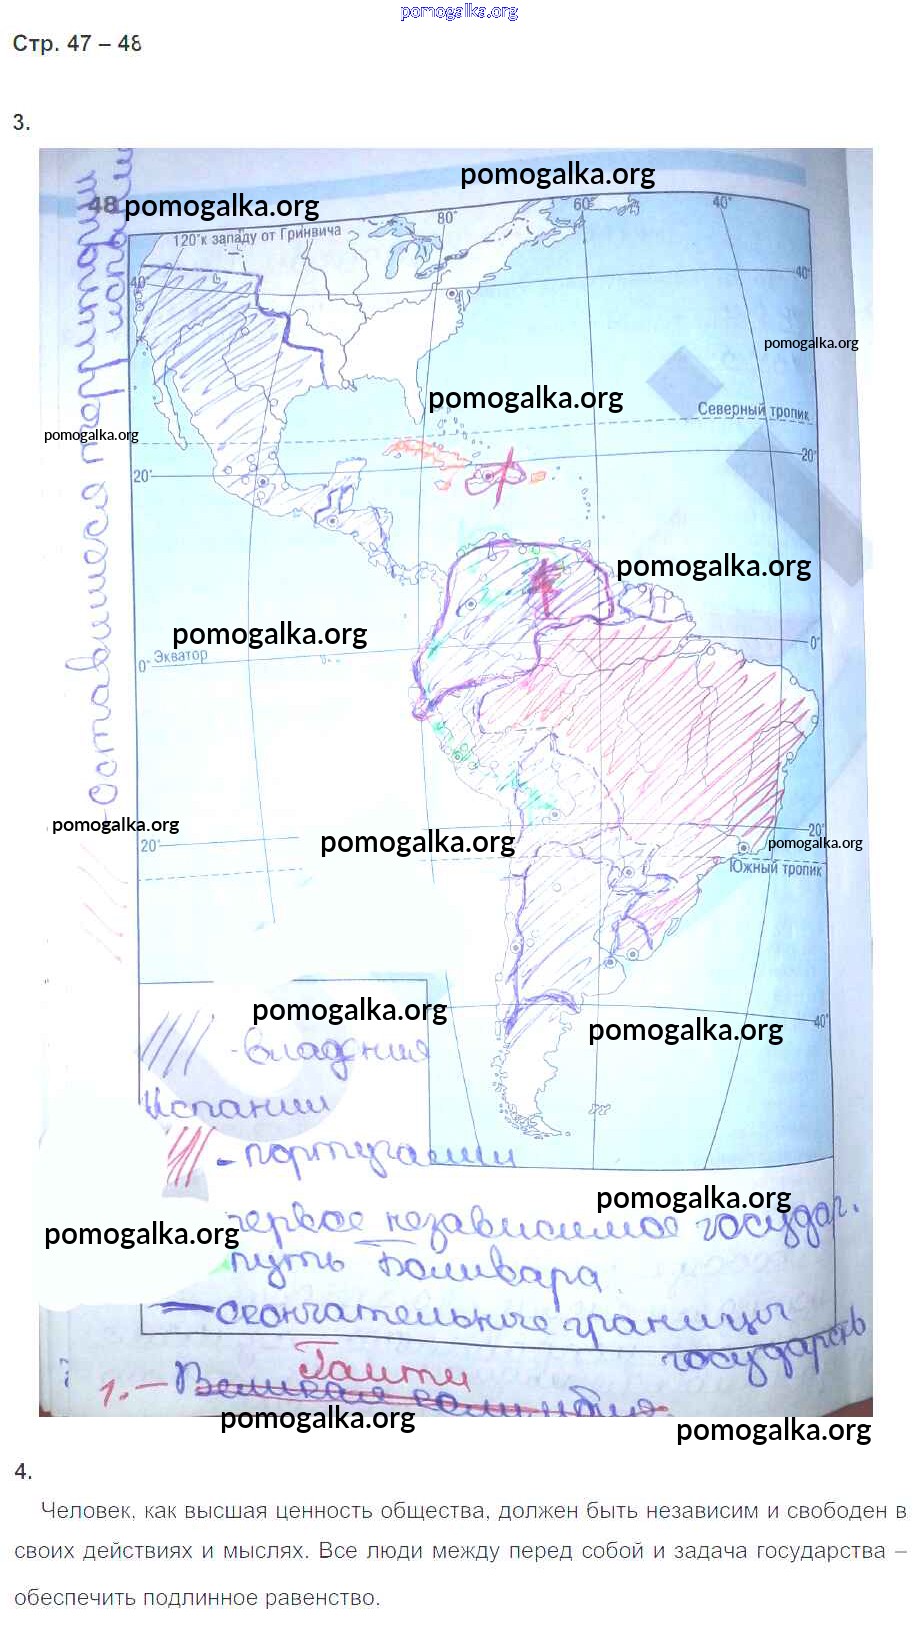 pomogalka.org
Стр. 47 – 48
3.
Оставшиеся территории
испании
48
pomogalka.org
pomogalka.org
120°к западу от Гринвича
80°
60°
40°
40°
40°
pomogalka.org
pomogalka.org
Северный тропик
pomogalka.org
20°
20°
pomogalka.org
pomogalka.org
0° Экватор
0°
pomogalka.org
20°
pomogalka.org
20°
pomogalka.org
Южный тропик
pomogalka.org
- владения
40°
pomogalka.org
Испании
- португалии
pomogalka.org
первое независимое государ.
pomogalka.org
путь Боливара
окончательные границы
государств
Гаити
1. – Великая колумбия.
pomogalka.org
pomogalka.org
4.
Человек, как высшая ценность общества, должен быть независим и свободен в
своих действиях и мыслях. Все люди между перед собой и задача государства –
обеспечить подлинное равенство.